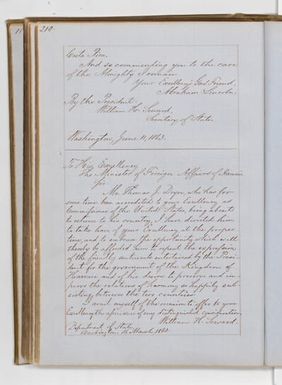 210
And so commending you to the care
of the Almighty I remain
Your Excellency's Good Friend,
Abraham Lincoln.
By the President.
William H. Seward,
Secretary of State.
Washington, June 1863.
To His Excellency
The Minister of Foreign Affairs of
Sir
Mr. Thomas J. Dryer, who has for
some time been accredited to your Excellency as
Commissioner of the United States, being about
to return to his country, I have directed him
to take leave of your Excellency at the proper
time, and to embrace the opportunity which will
thereby be afforded him to repeat the expression
of the friendly sentiments entertained by the Presi-
dent for the government of the Kingdom of
Hawaii and of his desire to preserve and im-
prove the relations of harmony so happily sub-
sisting between the two countries.
I avail myself of the occasion to offer to your
Excellency the assurance of my distinguished consideration,
William H. Seward.
Department of State
Washington, March 1863.